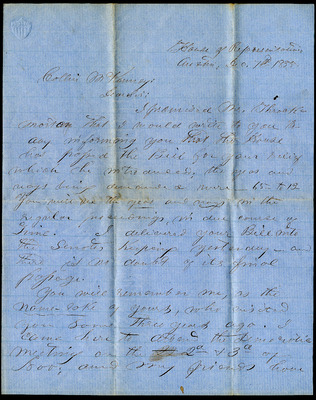 House of Representatives
Austin, Dec. 7th 1855
Collin McKinney
Dear Sir
I promised Mr. Throck-
morton that I would write to you to
day informing you that the House
has passed the Bill for your relief
which he introduced, the yeas and
nays being demanded & were 65 to 12
You will see the yeas and nays in the
regular proceedings, in due course of
time. I delivered your Bill into
the Senate, keeping yesterday and
there is no doubt of its final
passage.
You will remember me, as the
namesake of yours, who visited
you some three years ago. I
came here to attend the
meeting on the 2d & 3d of
Nov, and my friends have